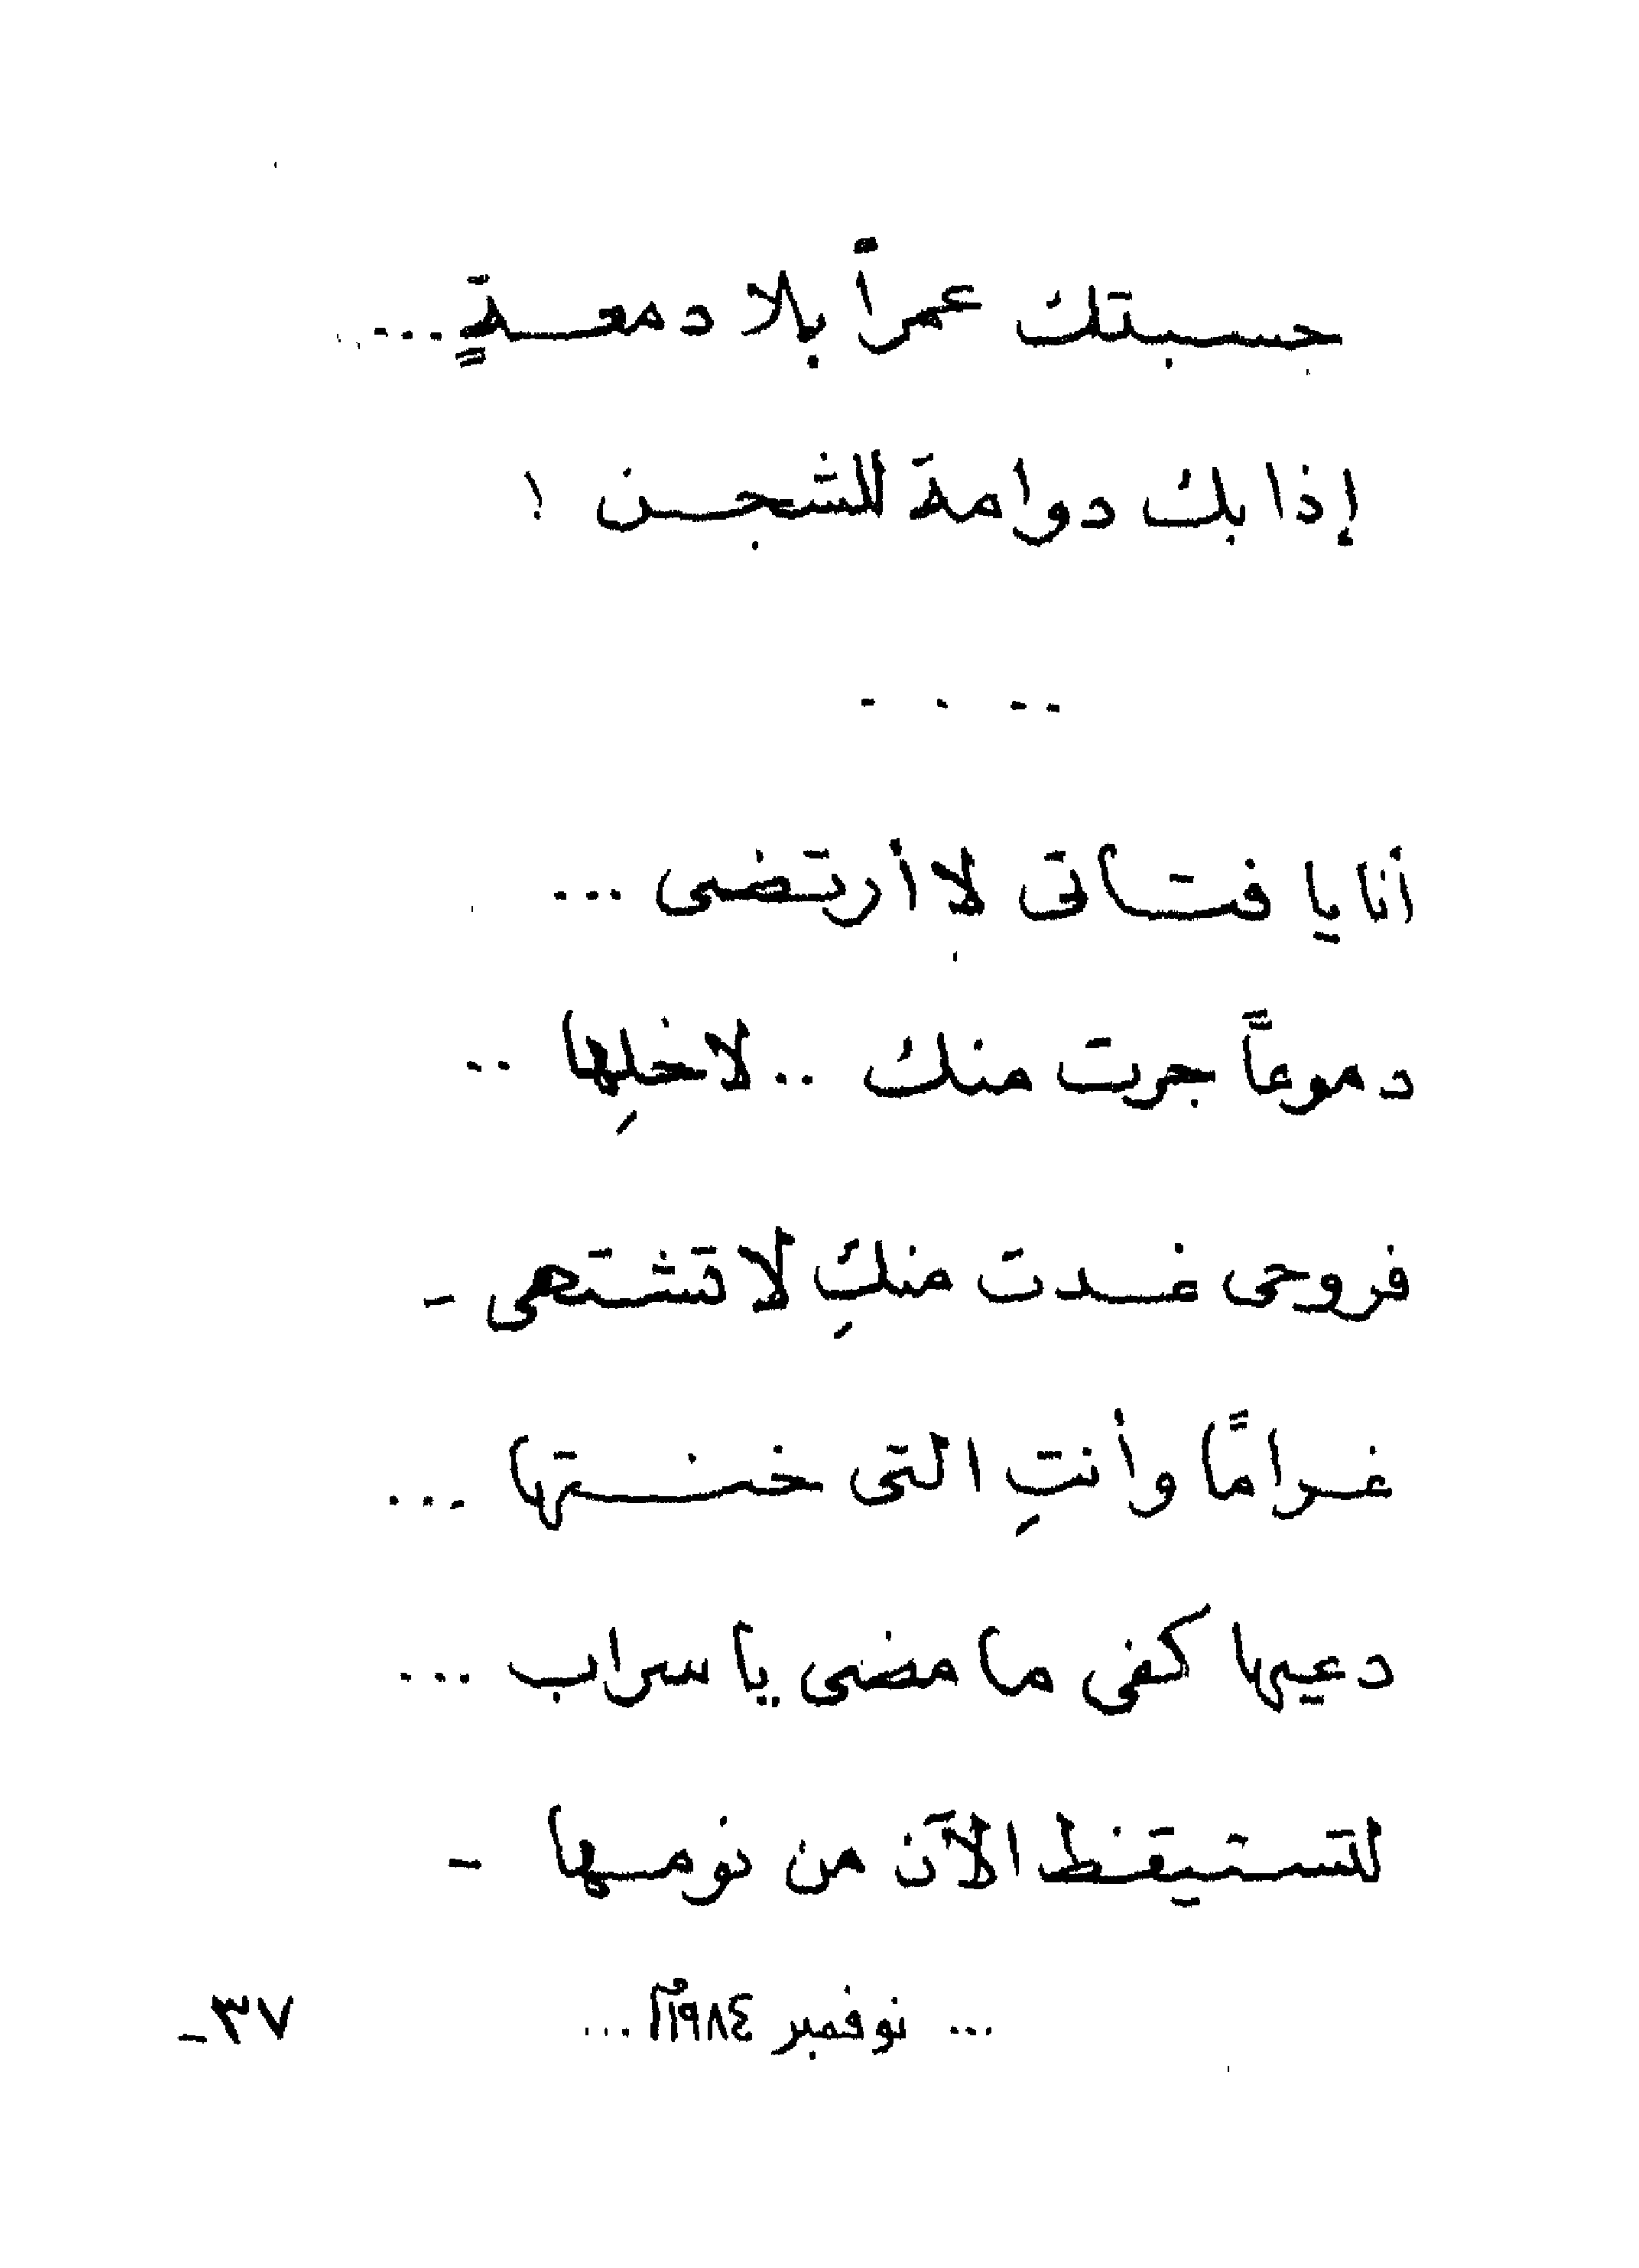 حسبتك عمراً بلا دمعةٍ ...
إذا بك دوامة للشجن !
.. . .
أنا يا فتاتى لا أرتضى ...
دموعاً جرت منك .. لا خلِها ..
فروحى غدت منكِ لا تشتهى -
غرامًا وأنتِ التى خنتها ...
دعيها كفى ما مضى يا سراب ...
لتستيقظ الآن من نومها -
... نوفمبر ١٩٨٤م ...
٣٧-